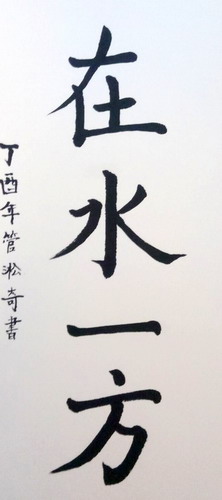 在水一方
丁酉年管淞奇書